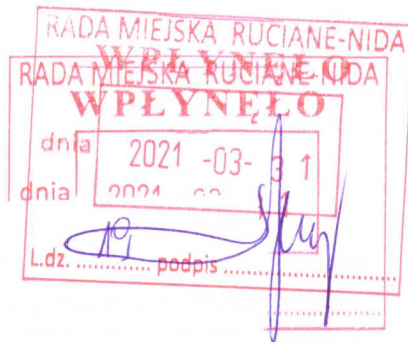 RADA MIEJSKA RUCIANE-NIDA
WPŁYNĘŁO
RADA MIEJSKA RUCIANE-NIDA
WPŁYNĘŁO
dnia 2021 -03- 31
dnia 2021
L.dz. ............ podpis ............